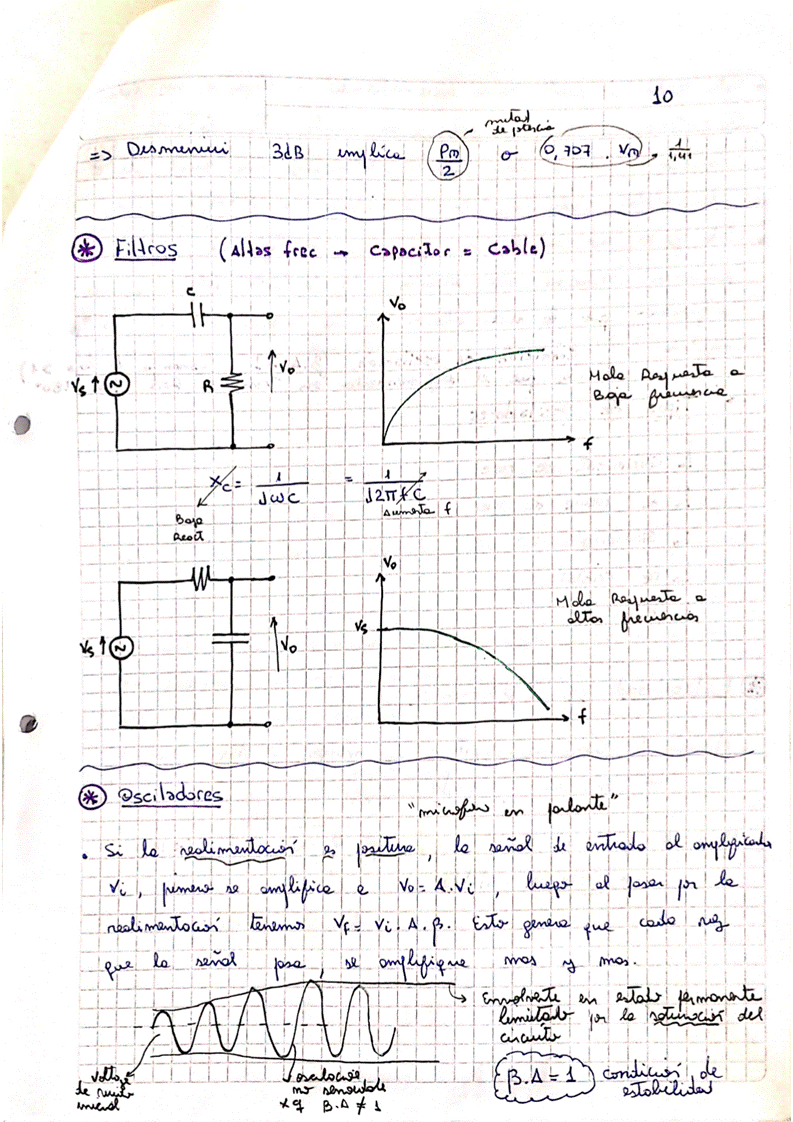 10
mitad
de potencia
=> Desmenuir 3dB implica Pm/2 o 0,707 . Vm 1/1,41
* Filtros (Altas frec → Capacitor = Cable)
C
Vs R Vo
Vo
f
Mala Respuesta a
Baja frecuencia
Xc = 1/JωC = 1/J2πfC
Baja
React
Aumenta f
Vs Vo
Vo
Vs
f
Mala Respuesta a
altas frecuencias
* Osciladores
"microfono en parlante"
• Si la realimentación es positiva, la señal de entrada al amplificador
Vi, primero se amplifica a Vo = A.Vi, luego al pasar por la
realimentación tenemos Vf = Vi.A.β. Esto genera que cada vez
que la señal pasa, se amplifique mas y mas.
Envolvente en estado permanente
limitado por la saturación del
circuito
voltaje
de ruido
inicial
oscilación
no senoidal
xq β.A ≠ 1
β.A = 1 condición de
estabilidad